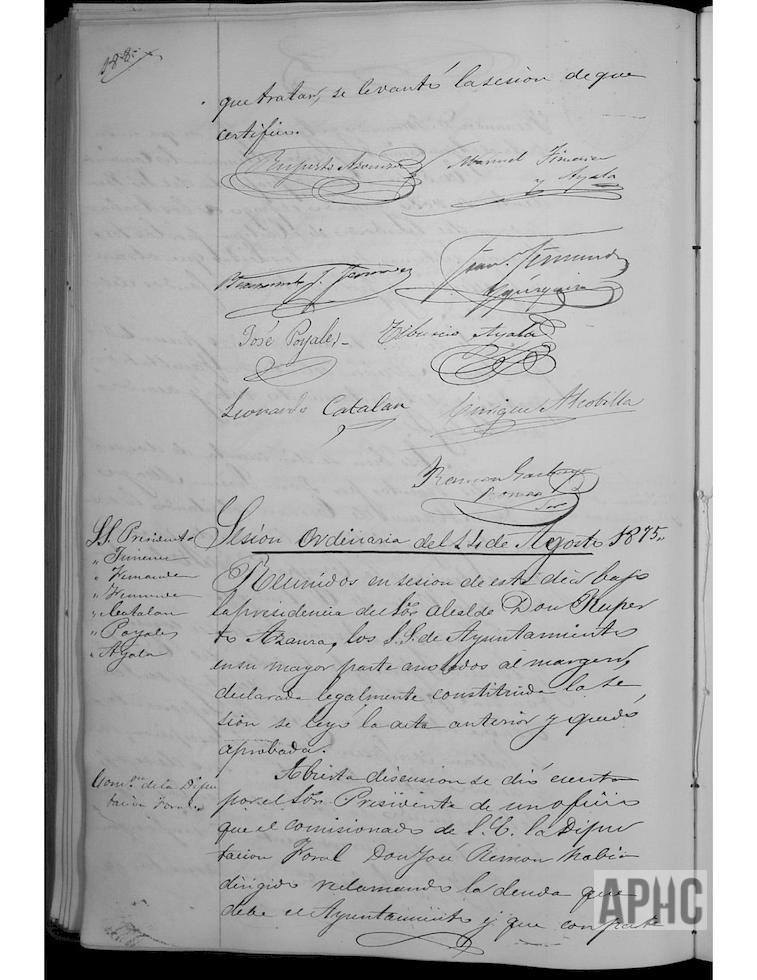 188
que tratar, se levantó la sesion de que
certifico.
Ruperto Azanza
Manuel Jimenez
y Ayala
Fernandez
José Poyales
Tiburcio Ayala
Leonardo Catalan
Enrique Alcobilla
Ramon
Sesion Ordinaria del 14 de Agosto 1875,,
SS. Presidente
" Jimenez
" Fernandez
" Fernandez
" Catalan
" Poyales
" Ayala
Reunidos en sesion de este dia bajo
la presidencia del Sôr Alcalde Don Ruper
to Azanza, los S.S. de Ayuntamiento
en su mayor parte anotados al margen,
declarada legalmente constituida la se
sion se leyó la acta anterior y quedó
aprobada.
Comon de la Dipu
tacion Foral
Abierta discusion se dió cuenta
por el Sôr Presidente de un oficio
que el comisionado de S.E. la Dipu
tacion Foral Don José Remon había
dirigido reclamando la deuda que
debe el Ayuntamiento y que con fecha
APHC